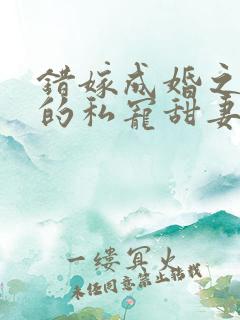 错嫁成婚之
的私宠甜妻
一缕冥火
未经同意禁止转载